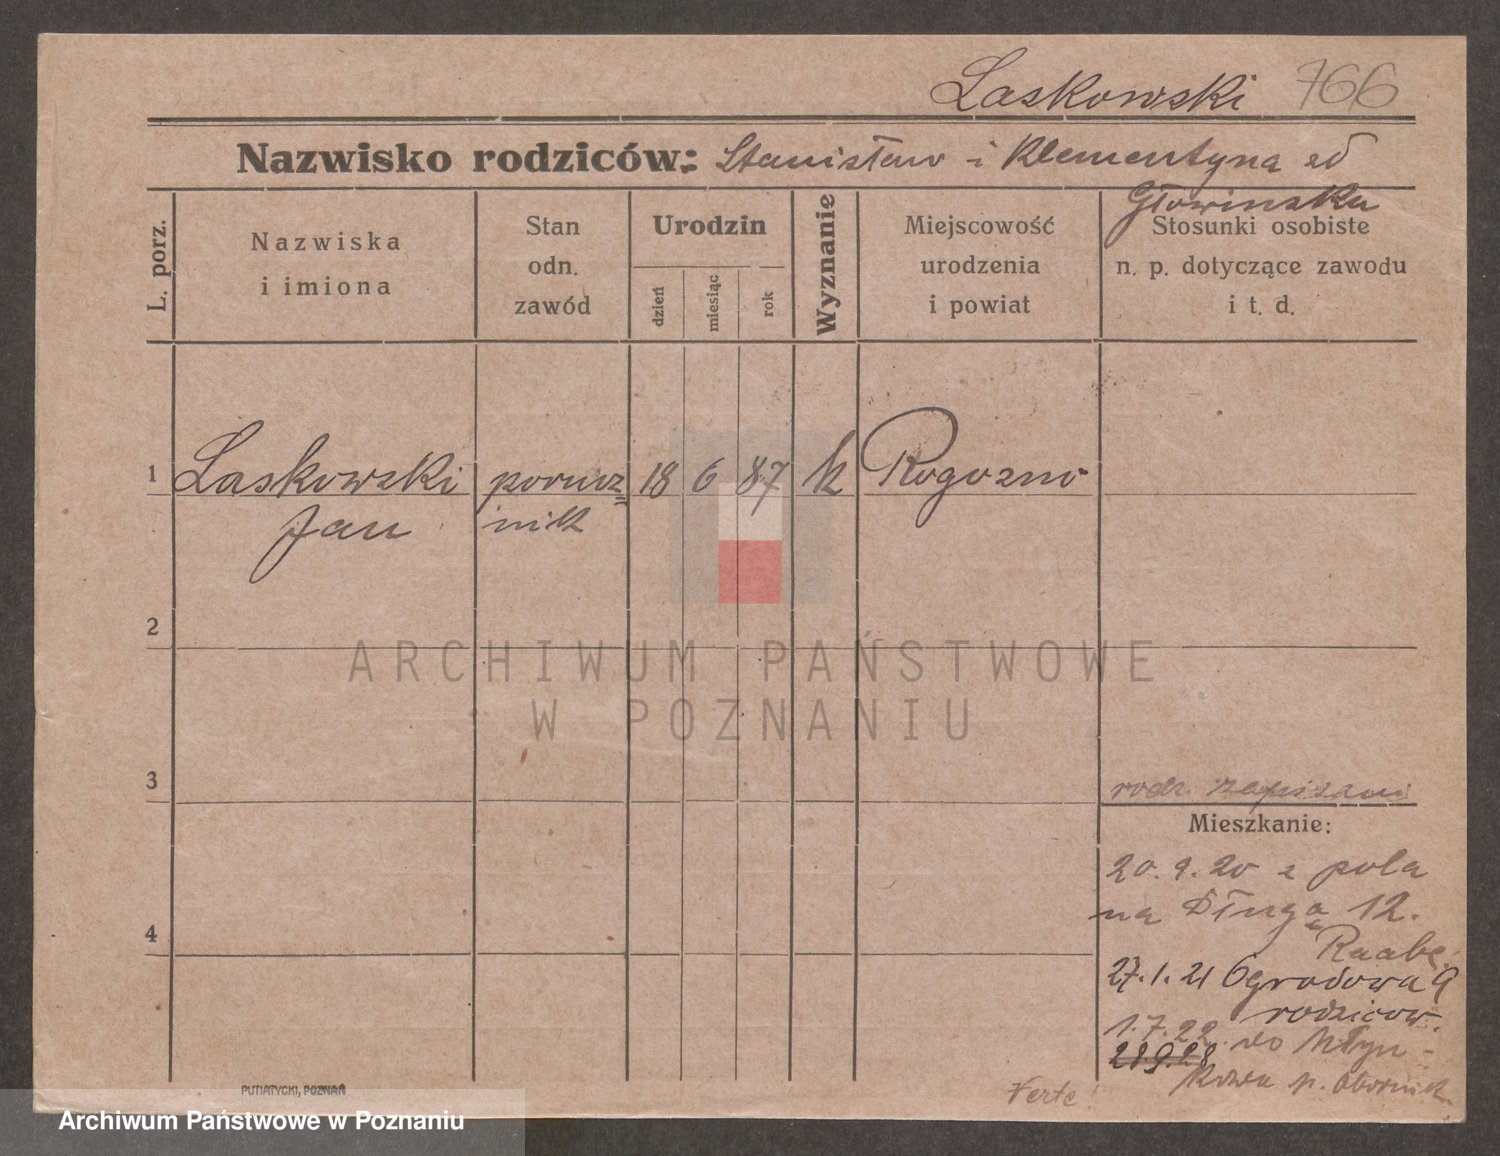 Laskowski 766
Nazwisko rodziców: Stanisław i Klementyna ed
Głowinska
L. porz.
Nazwiska
i imiona
Stan
odn.
zawód
Urodzin
dzień
miesiąc
rok
Wyznanie
Miejscowość
urodzenia
i powiat
Stosunki osobiste
n. p. dotyczące zawodu
i t. d.
1 Laskowski porucz= 18 6 87 k Rogozno
Jan nik
2
3
rodz. zapisani
Mieszkanie:
20.9.20 z pola
na Długą 12.
Raabe.
27.1.21 Ogrodowa 9
rodzicow.
1.7.22. do Młyn-
28.9.28
kowa p. Obornik.
4
Verte!
PUTIATYCKI, POZNAŃ
ARCHIWUM PAŃSTWOWE
W POZNANIU
Archiwum Państwowe w Poznaniu